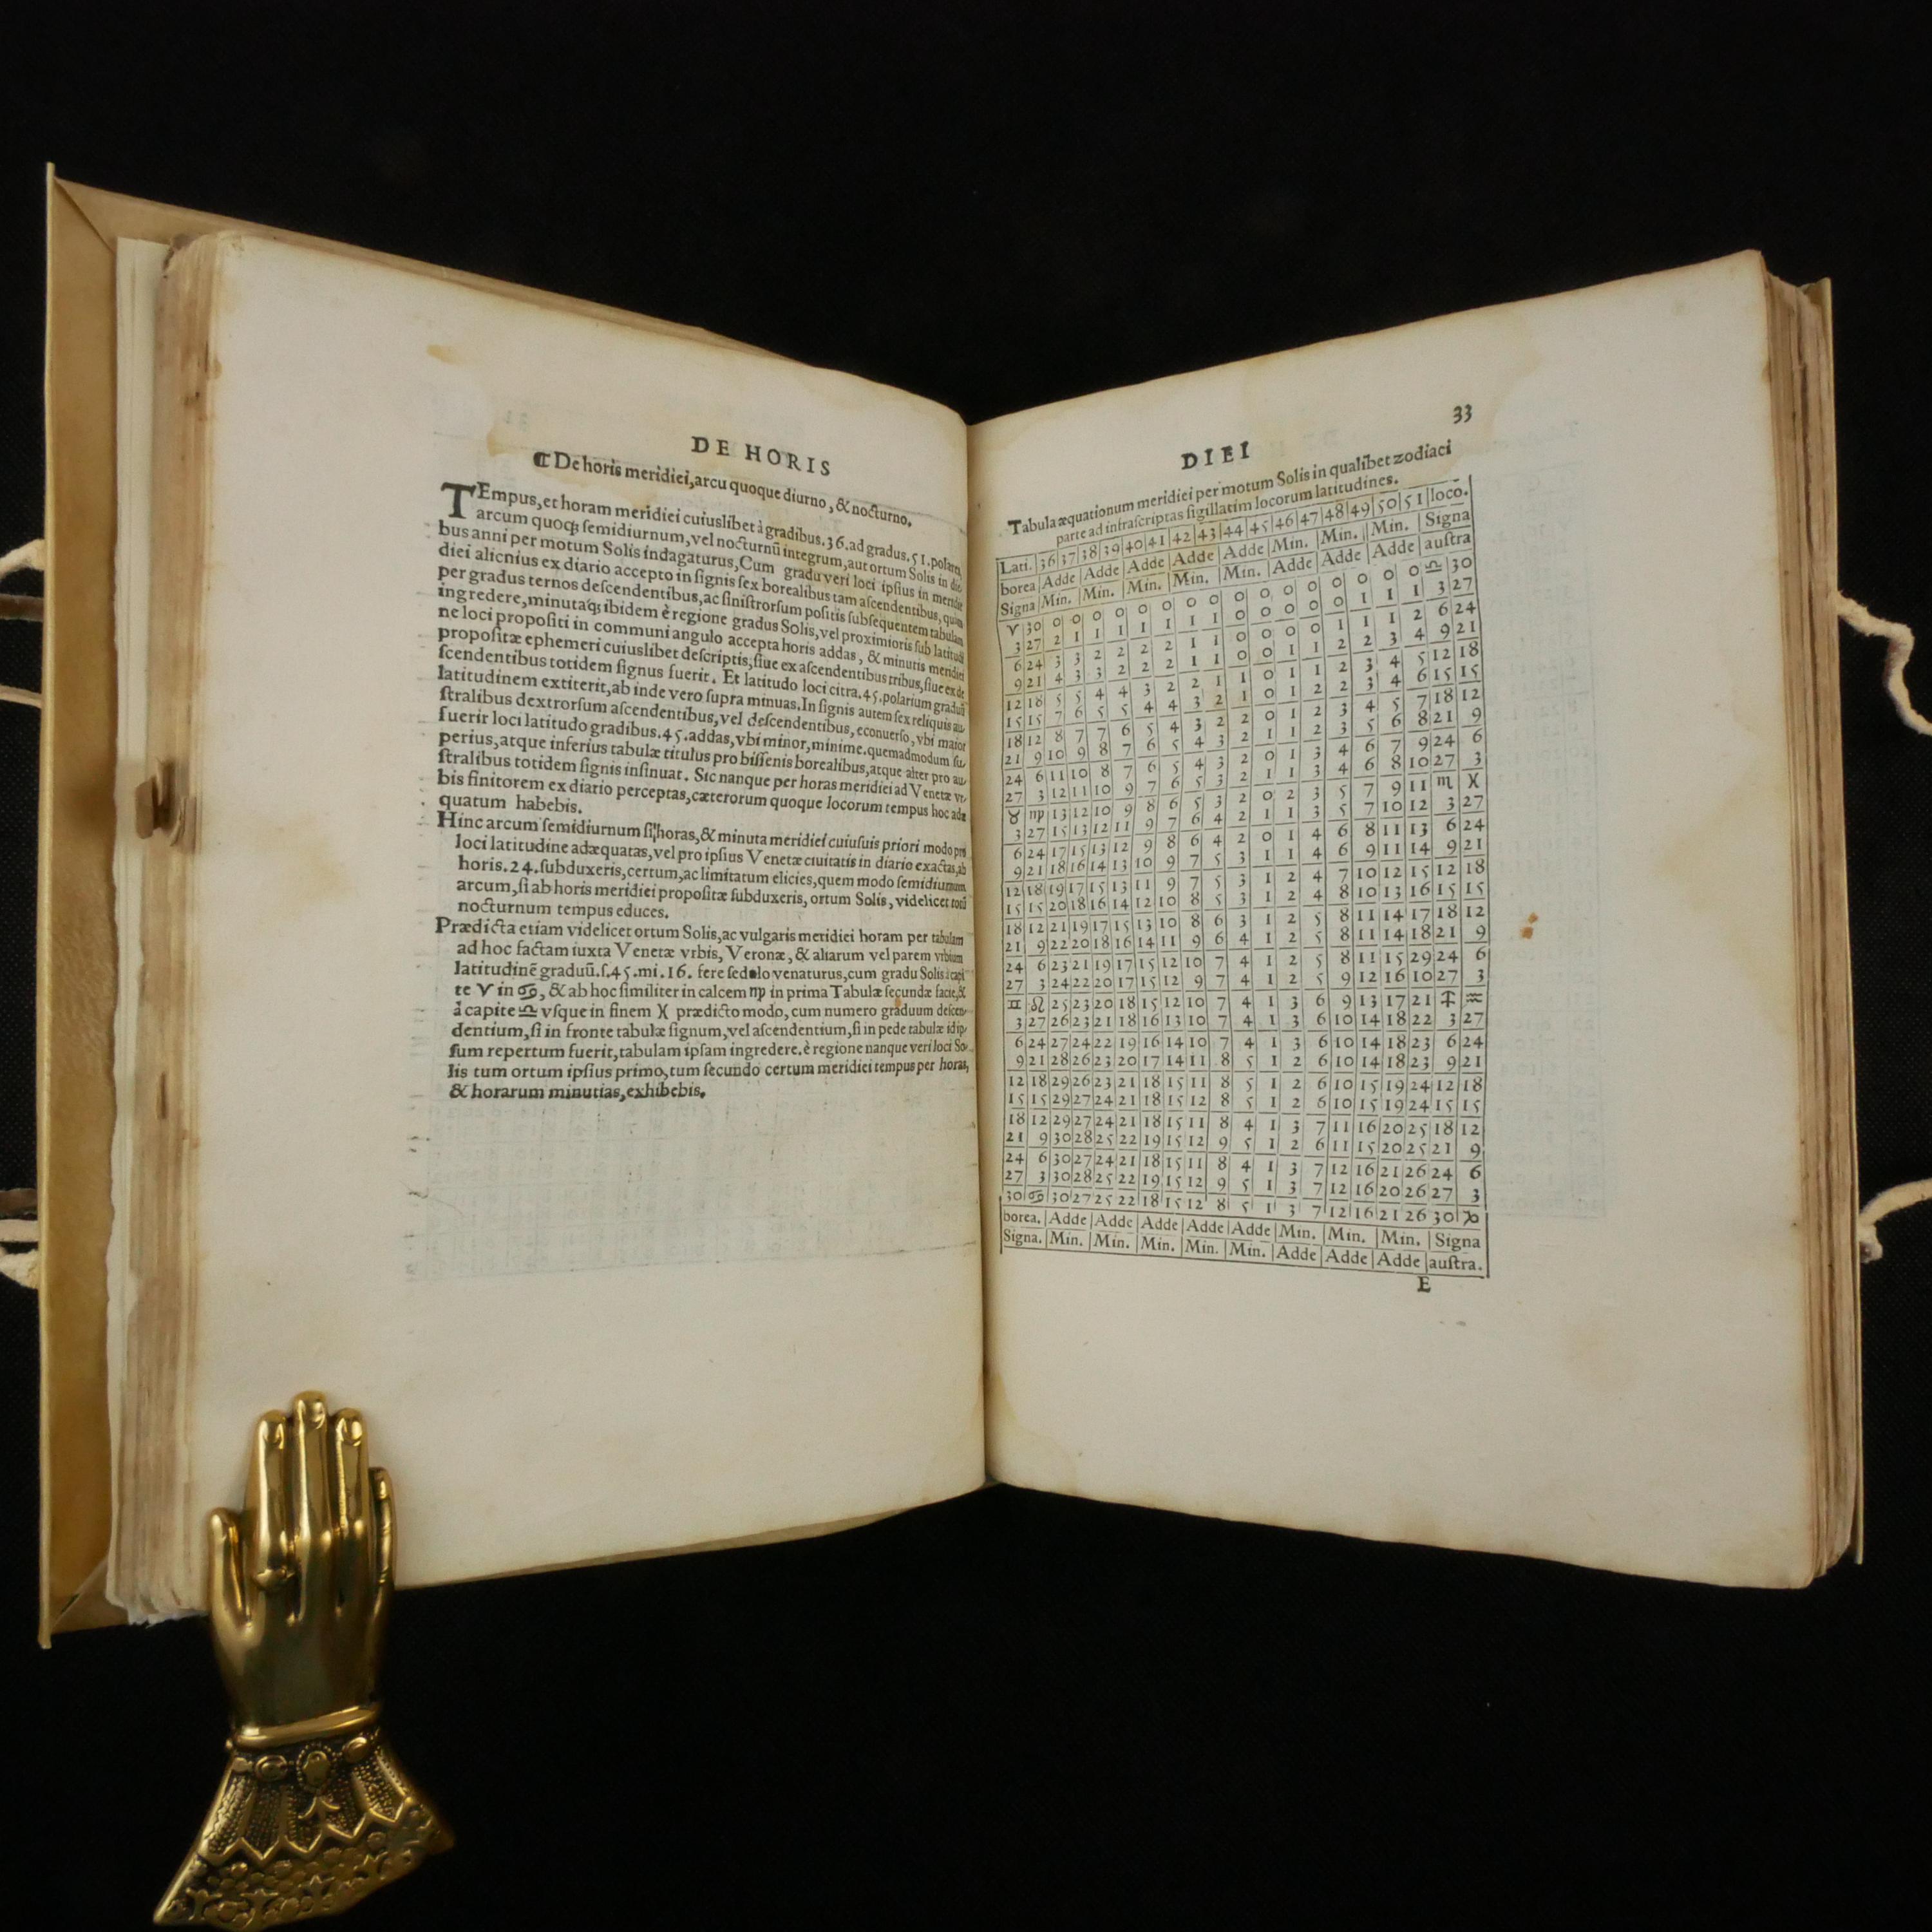 DE HORIS
⁋ De horis meridiei, arcu quoque diurno, & nocturno.
TEmpus, et horam meridiei cuiuslibet à gradibus. 36. ad gradus. 51. polares,
arcum quoqꝫ semidiurnum, vel nocturnū integrum, aut ortum Solis in
bus anni per motum Solis indagaturus, Cum gradu veri loci ipsius in meridie
diei alicnius ex diario accepto in signis sex borealibus tam ascendentibus, quàm
per gradus ternos descendentibus, ac sinistrorsum positis subsequentem tabulam
ingredere, minutaqꝫ ibidem è regione gradus Solis, vel proximioris sub latitudi
ne loci propositi in communi angulo accepta horis addas, & minutis meridiei
propositæ ephemeri cuiuslibet descriptis, siue ex ascendentibus tribus, siue ex de
scendentibus totidem signus fuerit. Et latitudo loci citra. 45. polarium graduū
latitudinem extiterit, ab inde vero supra minuas. In signis autem sex reliquis au-
stralibus dextrorsum ascendentibus, vel descendentibus, econuerso, vbi maior
fuerir loci latitudo gradibus. 45. addas, vbi minor, minime. quemadmodum su-
perius, atque inferius tabulæ titulus pro bissenis borealibus, atque alter pro au-
stralibus totidem signis insinuat. Sic nanque per horas meridiei ad Venetæ vr-
bis finitorem ex diario perceptas, cæterorum quoque locorum tempus hoc adæ
quatum habebis.
Hinc arcum semidiurnum si horas, & minuta meridiei cuiusuis priori modo pro
loci latitudine adæquatas, vel pro ipsius Venetæ ciuitatis in diario exactas, ab
horis. 24. subduxeris, certum, ac limitatum elicies, quem modo semidiurnum
arcum, si ab horis meridiei propositæ subduxeris, ortum Solis, videlicet totū
nocturnum tempus educes.
Prædicta etiam videlicet ortum Solis, ac vulgaris meridiei horam per tabulam
ad hoc factam iuxta Venetæ vrbis, Veronæ, & aliarum vel parem vrbium
latitudinē graduū. s. 45. mi. 16. fere sedolo venaturus, cum gradu Solis à capi
te ♈ in ♋, & ab hoc similiter in calcem ♍ in prima Tabulæ secundæ facie, &
à capite ♎ vsque in finem ♓ prædicto modo, cum numero graduum descen-
dentium, si in fronte tabulæ signum, vel ascendentium, si in pede tabulæ idip-
sum repertum fuerit, tabulam ipsam ingredere. è regione nanque veri loci So-
lis tum ortum ipsius primo, tum secundo certum meridiei tempus per horas,
& horarum minutias, exhibebis.
33
DIEI
Tabula æquationum meridiei per motum Solis in qualibet zodiaci
parte ad infrascriptas sigillatim locorum latitudines.
Lati. 36 37 38 39 40 41 42 43 44 45 46 47 48 49 50 51 loco.
borea Adde Adde Adde Adde Adde Min. Min. Min. Signa
Signa Min. Min. Min. Min. Min. Adde Adde Adde austra
♈ 30 0 0 0 0 0 0 0 0 0 0 0 0 0 0 0 0 ♎ 30
3 27 2 1 1 1 1 1 1 1 0 0 0 0 0 1 1 1 3 27
6 24 3 3 2 2 2 2 1 1 0 0 0 0 1 1 1 2 6 24
9 21 4 3 3 2 2 2 1 1 0 0 1 1 2 2 3 4 9 21
12 18 5 5 4 4 3 2 2 1 1 0 1 1 2 3 4 5 12 18
15 15 7 6 5 5 4 4 3 2 1 0 1 2 2 3 4 6 15 15
18 12 8 7 7 6 5 4 3 2 2 0 1 2 3 4 5 7 18 12
21 9 10 9 8 7 6 5 4 3 2 1 1 2 3 5 6 8 21 9
24 6 11 10 8 7 6 5 4 3 2 0 1 3 4 6 7 9 24 6
27 3 12 11 10 9 7 6 5 3 2 1 1 3 4 6 8 10 27 3
♉ ♍ 13 12 10 9 8 6 5 3 2 0 2 3 5 7 9 11 ♏ ♓
3 27 15 13 12 11 9 7 6 4 2 1 1 3 5 7 10 12 3 27
6 24 17 15 13 12 9 8 6 4 2 0 1 4 6 8 11 13 6 24
9 21 18 16 14 13 10 9 7 5 3 1 1 4 6 9 11 14 9 21
12 18 19 17 15 13 11 9 7 5 3 1 2 4 7 10 12 15 12 18
15 15 20 18 16 14 12 10 8 5 3 1 2 4 8 10 13 16 15 15
18 12 21 19 17 15 13 10 8 6 3 1 2 5 8 11 14 17 18 12
21 9 22 20 18 16 14 11 9 6 4 1 2 5 8 11 14 18 21 9
24 6 23 21 19 17 15 12 10 7 4 1 2 5 8 11 15 29 24 6
27 3 24 22 20 17 15 12 9 7 4 1 2 5 9 12 16 10 27 3
♊ ♌ 25 23 20 18 15 12 10 7 4 1 3 6 9 13 17 21 ♐ ♒
3 27 26 23 21 18 16 13 10 7 4 1 3 6 10 14 18 22 3 27
6 24 27 24 22 19 16 14 10 7 4 1 3 6 10 14 18 23 6 24
9 21 28 26 23 20 17 14 11 8 5 1 2 6 10 14 18 23 9 21
12 18 29 26 23 21 18 15 11 8 5 1 2 6 10 15 19 24 12 18
15 15 29 27 24 21 18 15 12 8 5 1 2 6 10 15 19 24 15 15
18 12 29 27 24 21 18 15 11 8 4 1 3 7 11 16 20 25 18 12
21 9 30 28 25 22 19 15 12 9 5 1 2 6 11 15 20 25 21 9
24 6 30 27 24 21 18 15 11 8 4 1 3 7 12 16 21 26 24 6
27 3 30 28 25 22 19 15 12 9 5 1 3 7 12 16 20 26 27 3
30 ♋ 30 27 25 22 18 15 12 8 5 1 3 7 12 16 21 26 30 ♑
borea. Adde Adde Adde Adde Adde Min. Min. Min. Signa
Signa. Min. Min. Min. Min. Min. Adde Adde Adde austra.
E